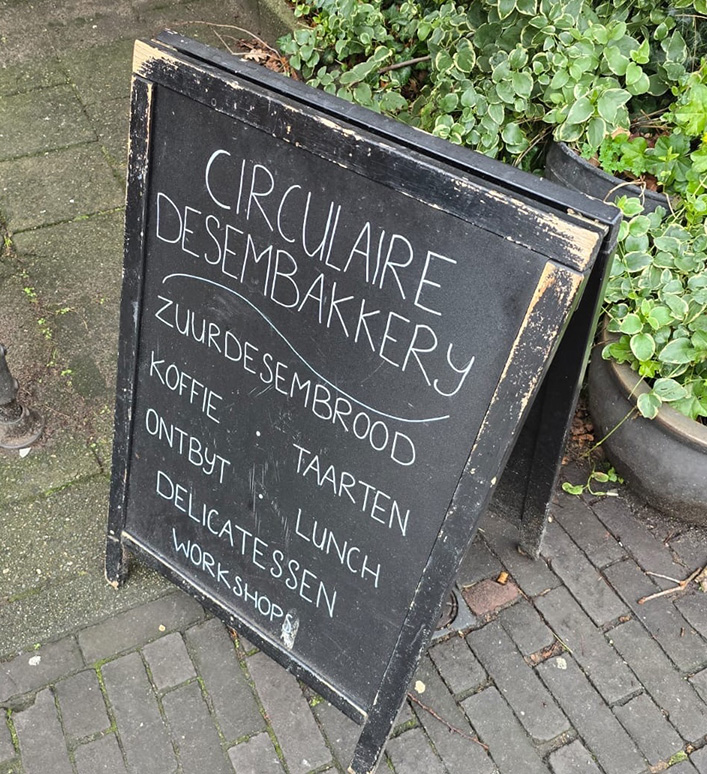 CIRCULAIRE
DESEMBAKKERY
ZUURDESEMBROOD
KOFFIE • TAARTEN
ONTBYT • LUNCH
DELICATESSEN
WORKSHOPS